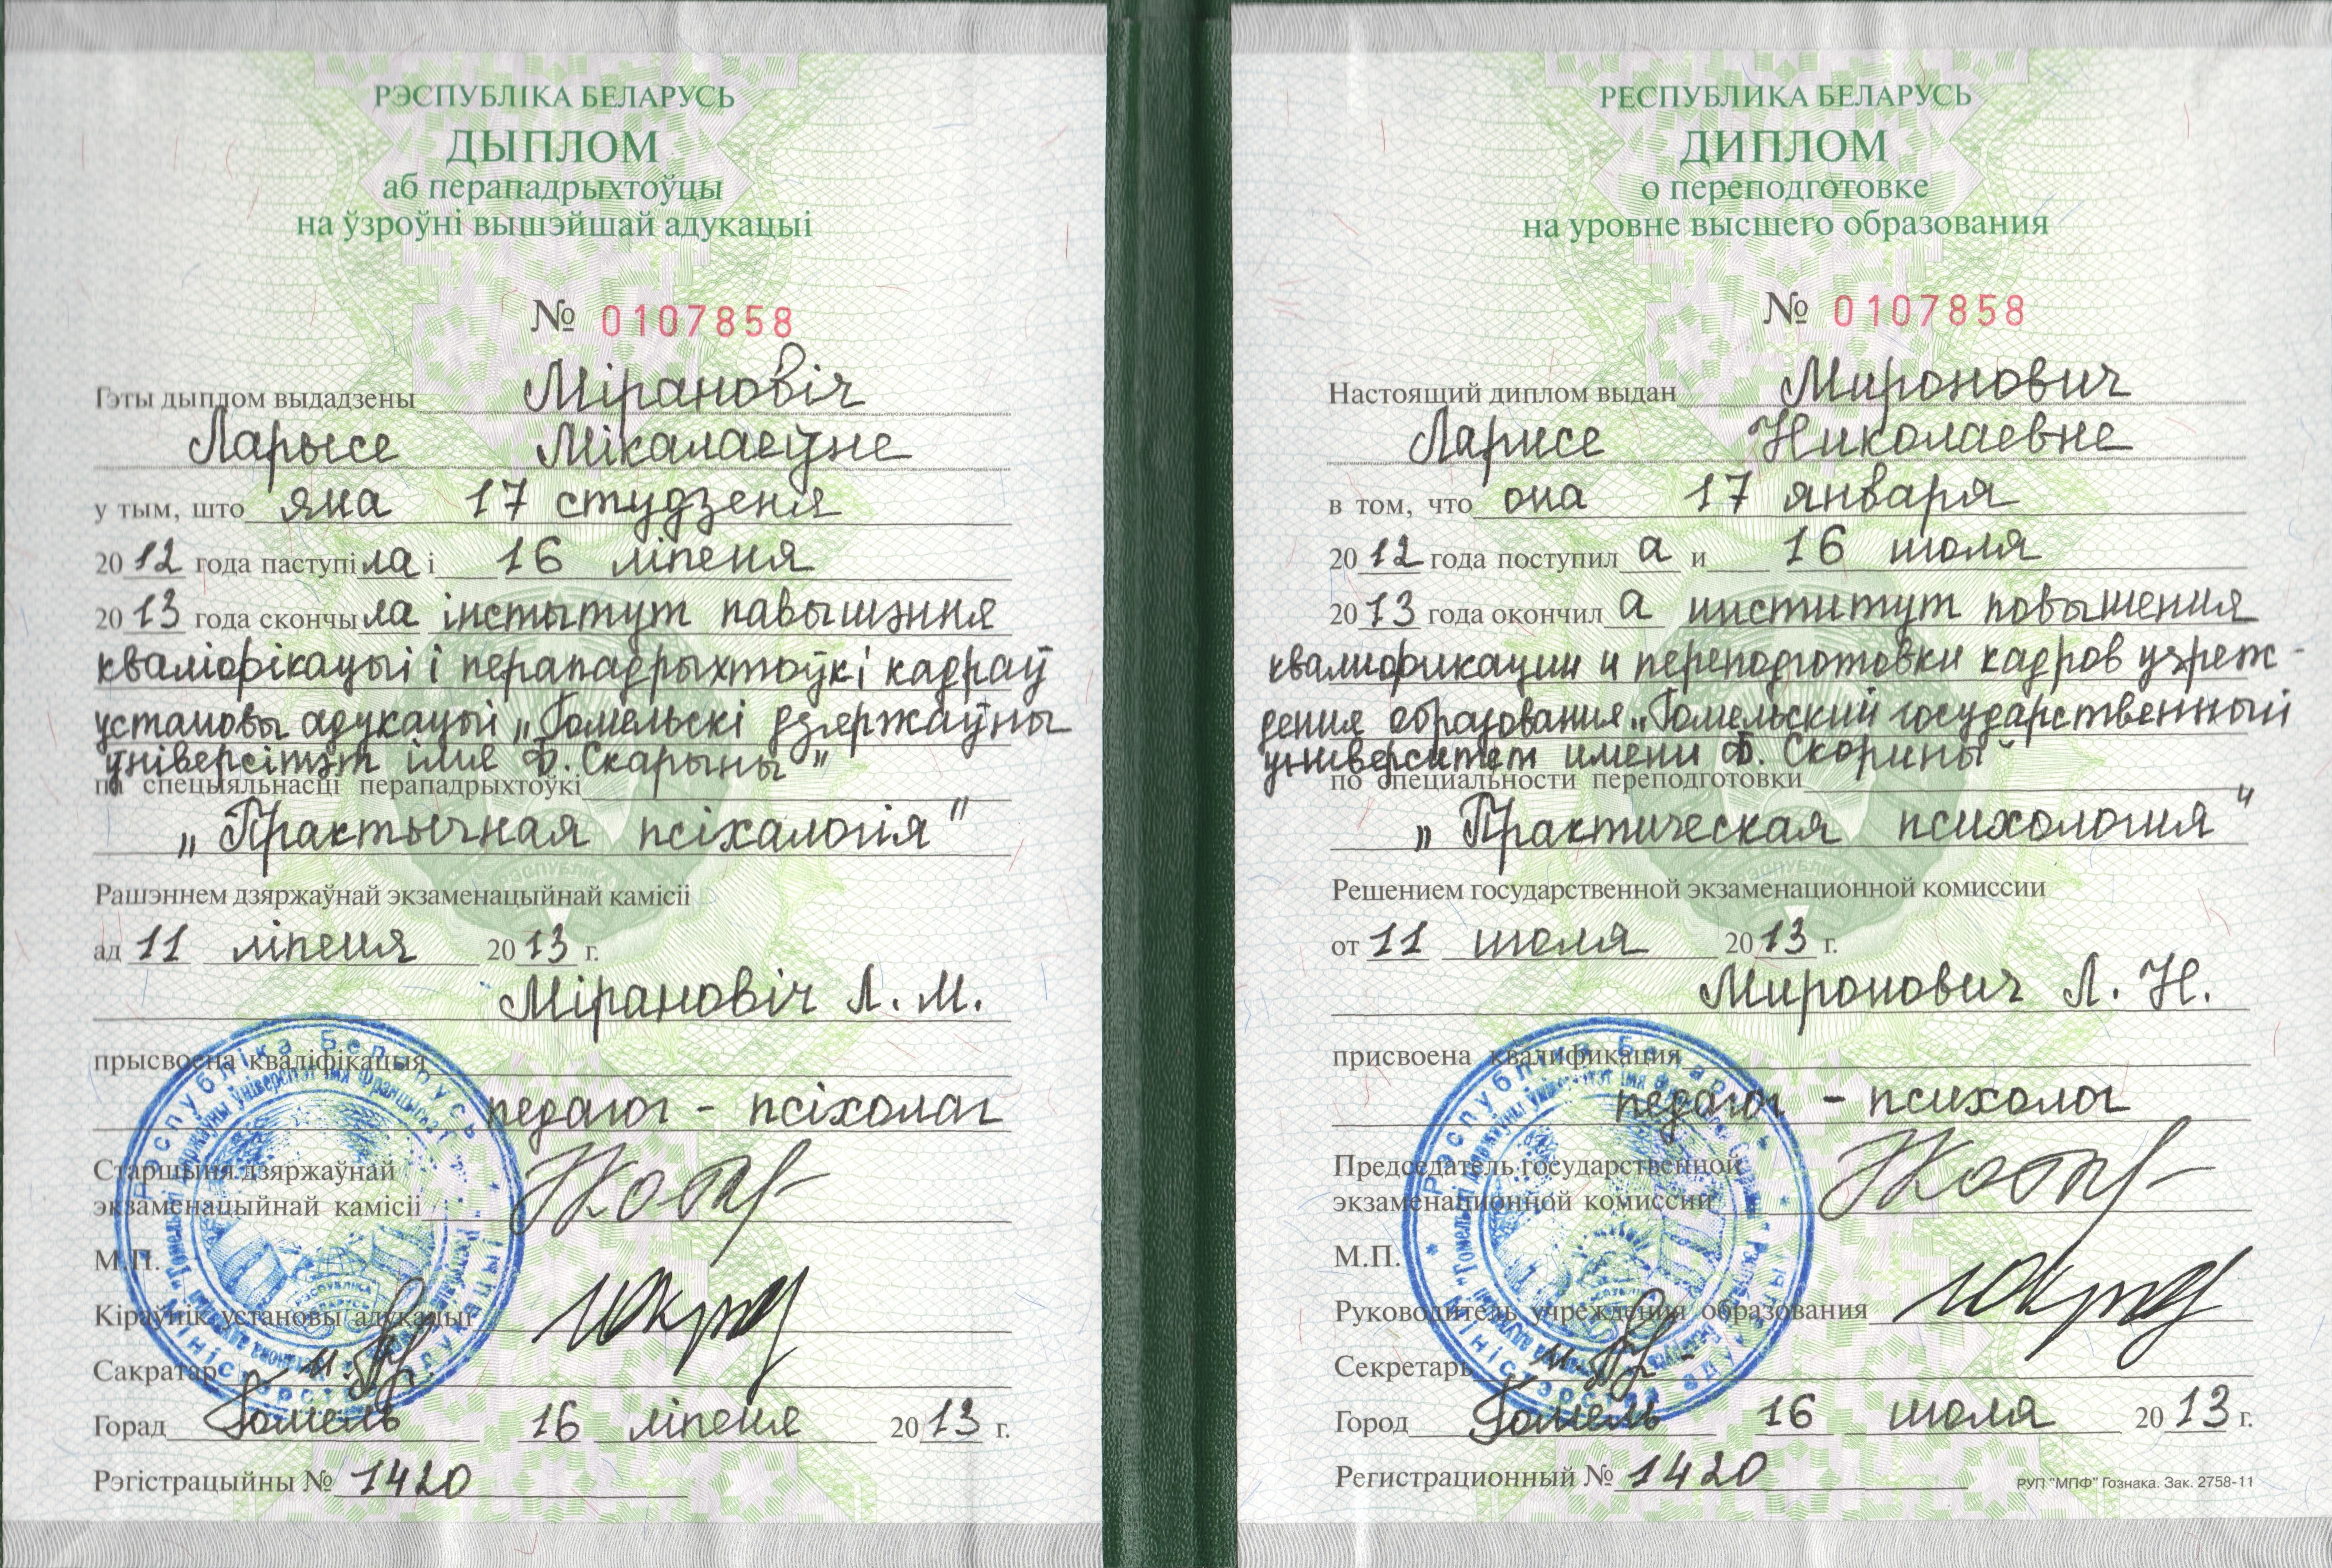 РЭСПУБЛІКА БЕЛАРУСЬ
ДЫПЛОМ
аб перападрыхтоўцы
на ўзроўні вышэйшай адукацыі
№ 0107858
Гэты дыплом выдадзены Мірановіч
Ларысе Мікалаеўне
у тым, што яна 17 студзеня
2012 года паступіла і 16 ліпеня
2013 года скончыла інстытут павышэння
кваліфікацыі і перападрыхтоўкі кадраў
установы адукацыі „Гомельскі дзяржаўны
ўніверсітэт імя Ф. Скарыны"
па спецыяльнасці перападрыхтоўкі
„Практычная псіхалогія"
Рашэннем дзяржаўнай экзаменацыйнай камісіі
ад 11 ліпеня 2013 г.
Мірановіч Л. М.
прысвоена кваліфікацыя
педагог - псіхолаг
Старшыня дзяржаўнай
экзаменацыйнай камісіі
М.П.
Кіраўнік установы адукацыі
Сакратар
Горад Гомель 16 ліпеня 2013 г.
Рэгістрацыйны № 1420
РЕСПУБЛИКА БЕЛАРУСЬ
ДИПЛОМ
о переподготовке
на уровне высшего образования
№ 0107858
Настоящий диплом выдан Миронович
Ларисе Николаевне
в том, что она 17 января
2012 года поступила и 16 июля
2013 года окончила институт повышения
квалификации и переподготовки кадров учреж-
дения образования „Гомельский государственный
университет имени Ф. Скорины"
по специальности переподготовки
„Практическая психология"
Решением государственной экзаменационной комиссии
от 11 июля 2013 г.
Миронович Л. Н.
присвоена квалификация
педагог - психолог
Председатель государственной
экзаменационной комиссии
М.П.
Руководитель учреждения образования
Секретарь
Город Гомель 16 июля 2013 г.
Регистрационный № 1420
РУП "МПФ" Гознака. Зак. 2758-11